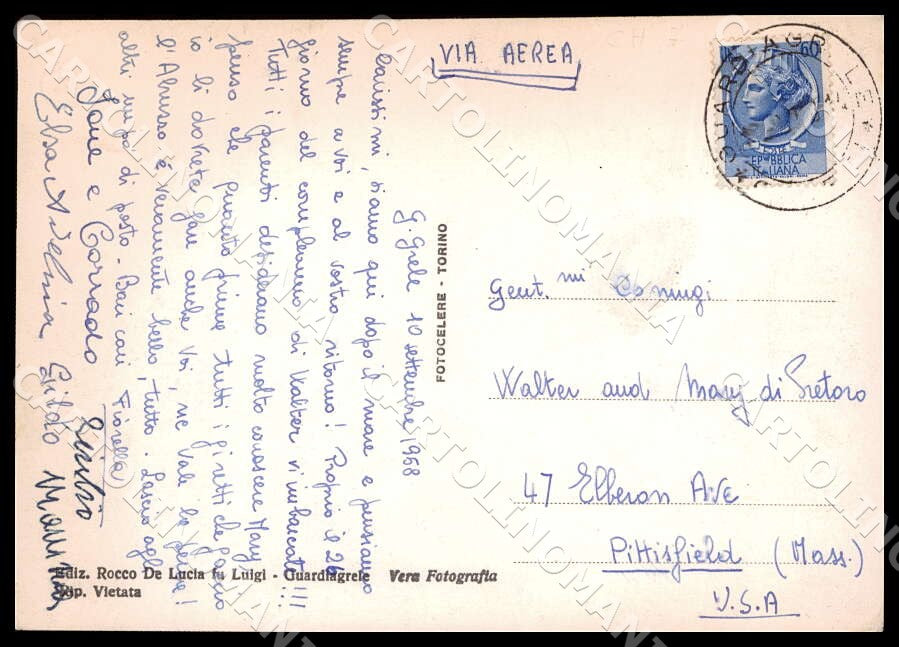 VIA AEREA
60
POSTE
REPUBBLICA
ITALIANA
G. Grele 10 settembre 1958
Carissimi, siamo qui dopo il mare e pensiamo
sempre a voi e al vostro ritorno! Proprio il 26
giorno del compleanno di Walter vi imbarcate!!!
Tutti i parenti desiderano molto conoscere Mary
penso che quanto prima tutti i giretti che faccio
io li dovrete fare anche voi, ne vale la pena!
l'Abruzzo è veramente bello, tutto. Lascio agli
altri un po' di posto - Baci cari Fiorella
Jane e Corrado
Elsa Adelina Gildo
FOTOCELERE - TORINO
Gent.mi Coniugi
Walter and Mary di Pretoro
47 Elberon Ave
Pittisfield (Mass.)
U.S.A
Ediz. Rocco De Lucia fu Luigi - Guardiagrele Vera Fotografia
Rip. Vietata
CARTOLINOMANIA